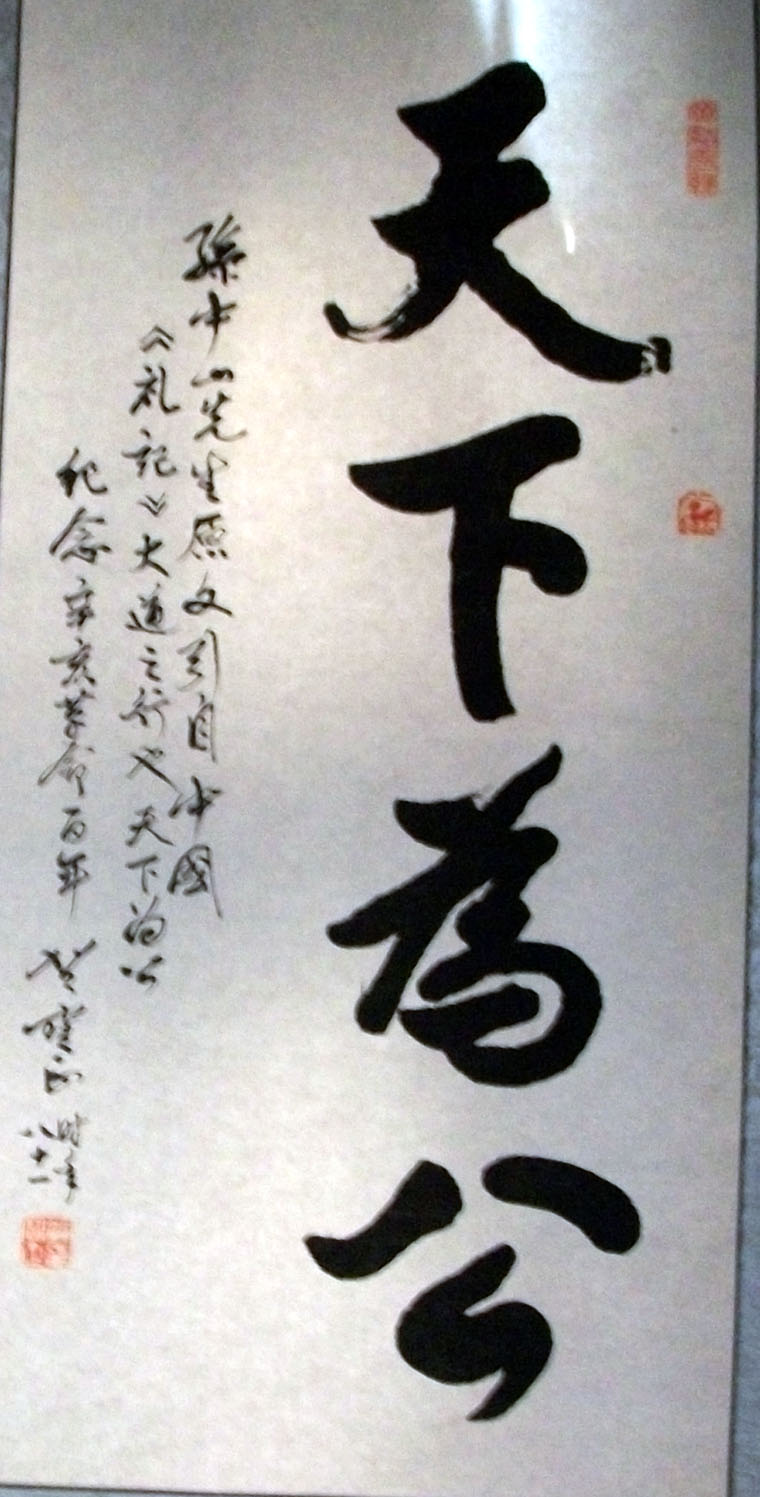 天下為公
孫中山先生原文引自中國
《礼記》大道之行也天下為公
纪念辛亥革命百年
時年八十一